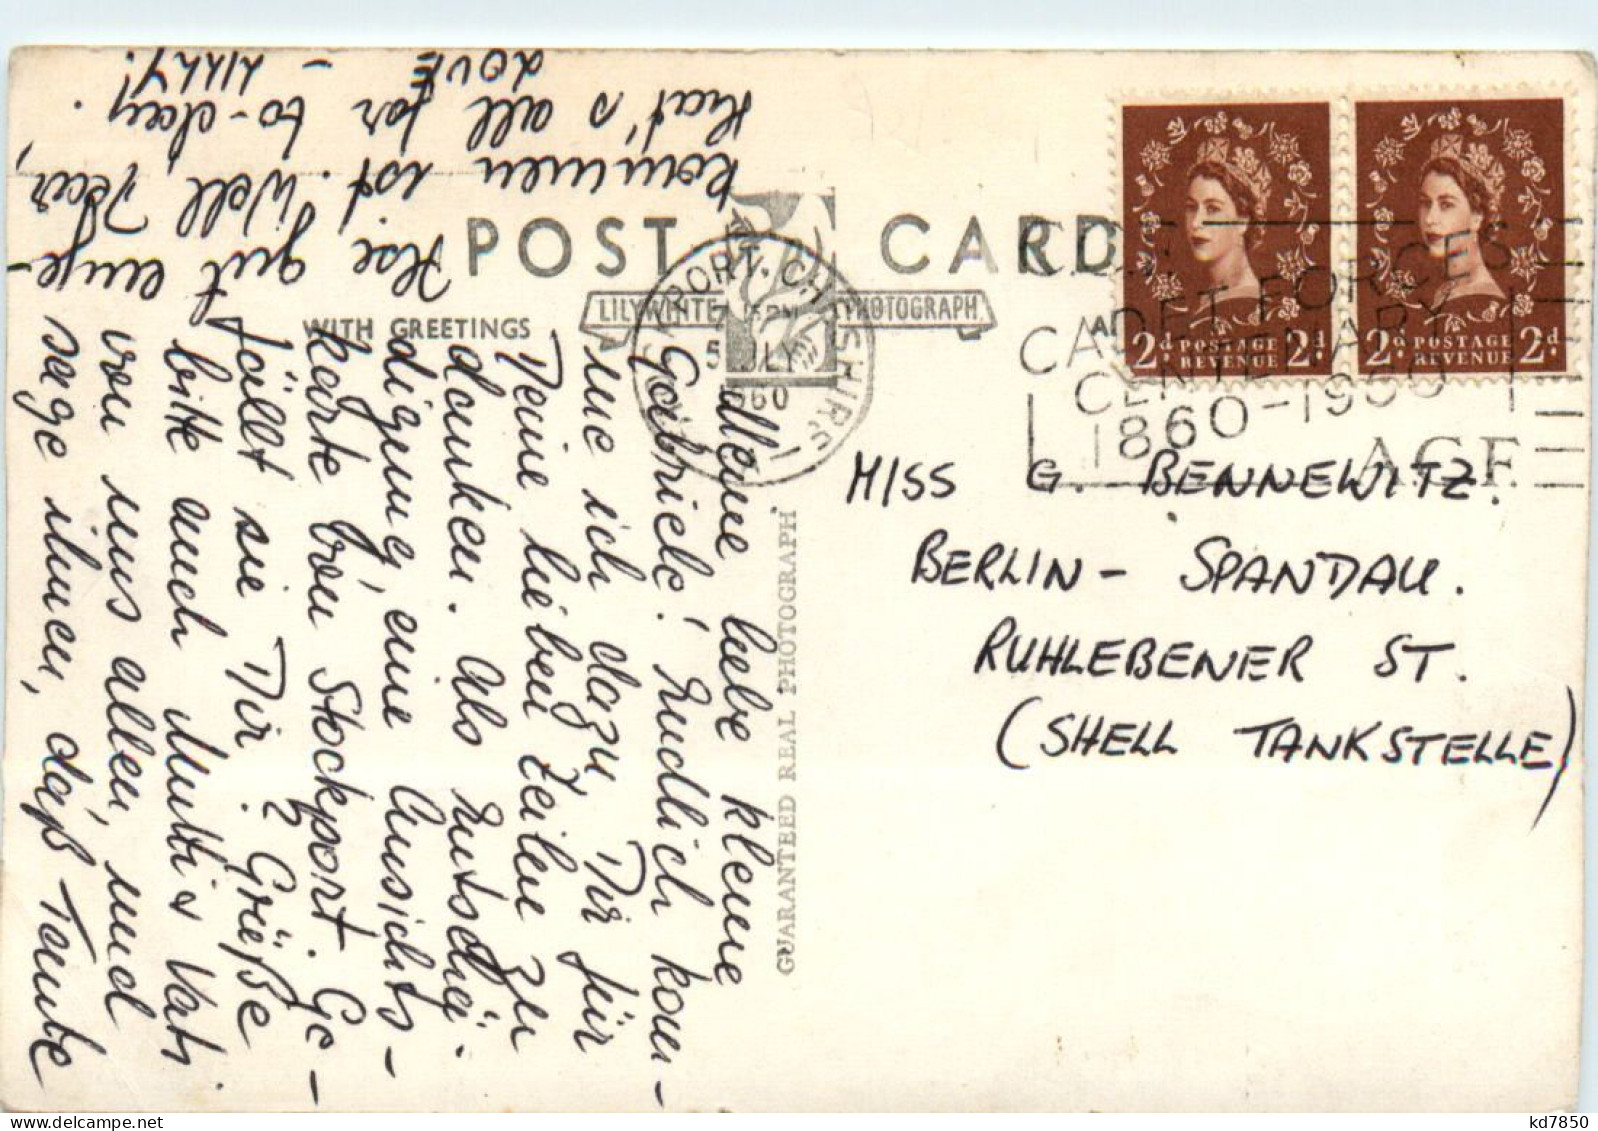 POST CARD
LILYWHITE PHOTOGRAPH
WITH GREETINGS
STOCKPORT. CHESHIRE
5 JULY
1960
CADET FORCES
CENTENARY
1860-1960
A.C.F.
2d POSTAGE REVENUE 2d
2d POSTAGE REVENUE 2d
GUARANTEED REAL PHOTOGRAPH
MISS G. BENNEWITZ.
BERLIN - SPANDAU.
RUHLEBENER ST.
(SHELL TANKSTELLE)
Meine liebe kleine
Gabriele! Endlich kom-
me ich dazu Dir für
Deine lieben Zeilen zu
danken. Als Entschä-
digung, eine Ansichts-
karte von Stockport. Ge-
fällt sie Dir? Grüße
bitte auch Mutti & Vati
von uns allen, und
sage ihnen, daß Tante
Ilse gut ange-
kommen ist. Well Dear,
that's all for to-day.
LOVE -
kd7850